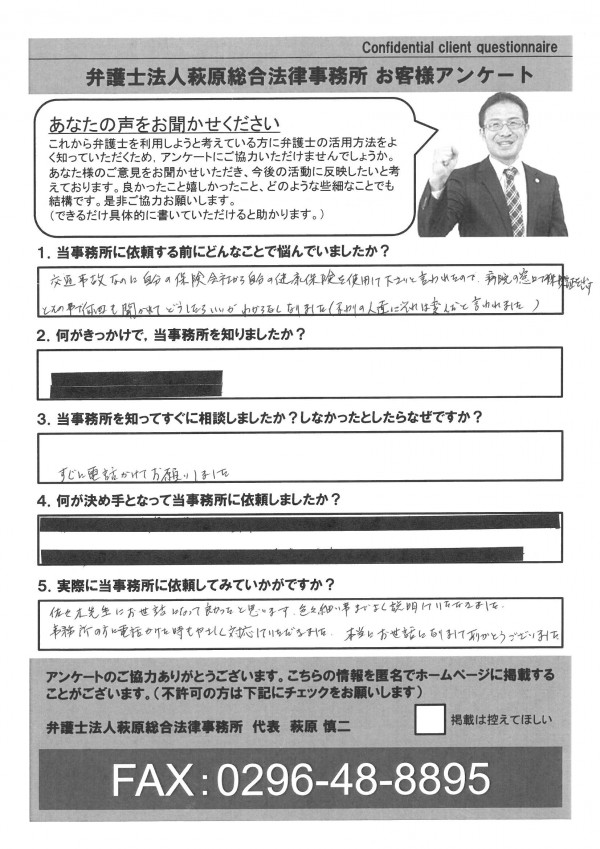 Confidential client questionnaire
弁護士法人萩原総合法律事務所 お客様アンケート
あなたの声をお聞かせください
これから弁護士を利用しようと考えている方に弁護士の活用方法をよ
く知っていただくため、アンケートにご協力いただけませんでしょうか。
あなた様のご意見をお聞かせいただき、今後の活動に反映したいと考
えております。良かったこと嬉しかったこと、どのような些細なことでも
結構です。是非ご協力お願いします。
(できるだけ具体的に書いていただけると助かります。)
1．当事務所に依頼する前にどんなことで悩んでいましたか？
交通事故なのに自分の保険会社から自分の健康保険を使用して下さいと言われたので、病院の窓口で
どうしたらいいかわからなくなりました(まわりの人達にそれは変だと言われました)
2．何がきっかけで，当事務所を知りましたか？
3．当事務所を知ってすぐに相談しましたか？しなかったとしたらなぜですか？
すぐに電話かけてお願いしました
4．何が決め手となって当事務所に依頼しましたか？
5．実際に当事務所に依頼してみていかがですか？
佐々木先生にお世話になって良かったと思います。色々細い事までよく説明していただきました。
事務所の方に電話かけた時もやさしく対応していただきました。本当にお世話になりましてありがとうございました
アンケートのご協力ありがとうございます。こちらの情報を匿名でホームページに掲載する
ことがございます。（不許可の方は下記にチェックをお願いします）
弁護士法人萩原総合法律事務所 代表 萩原 慎二
掲載は控えてほしい
FAX：0296-48-8895